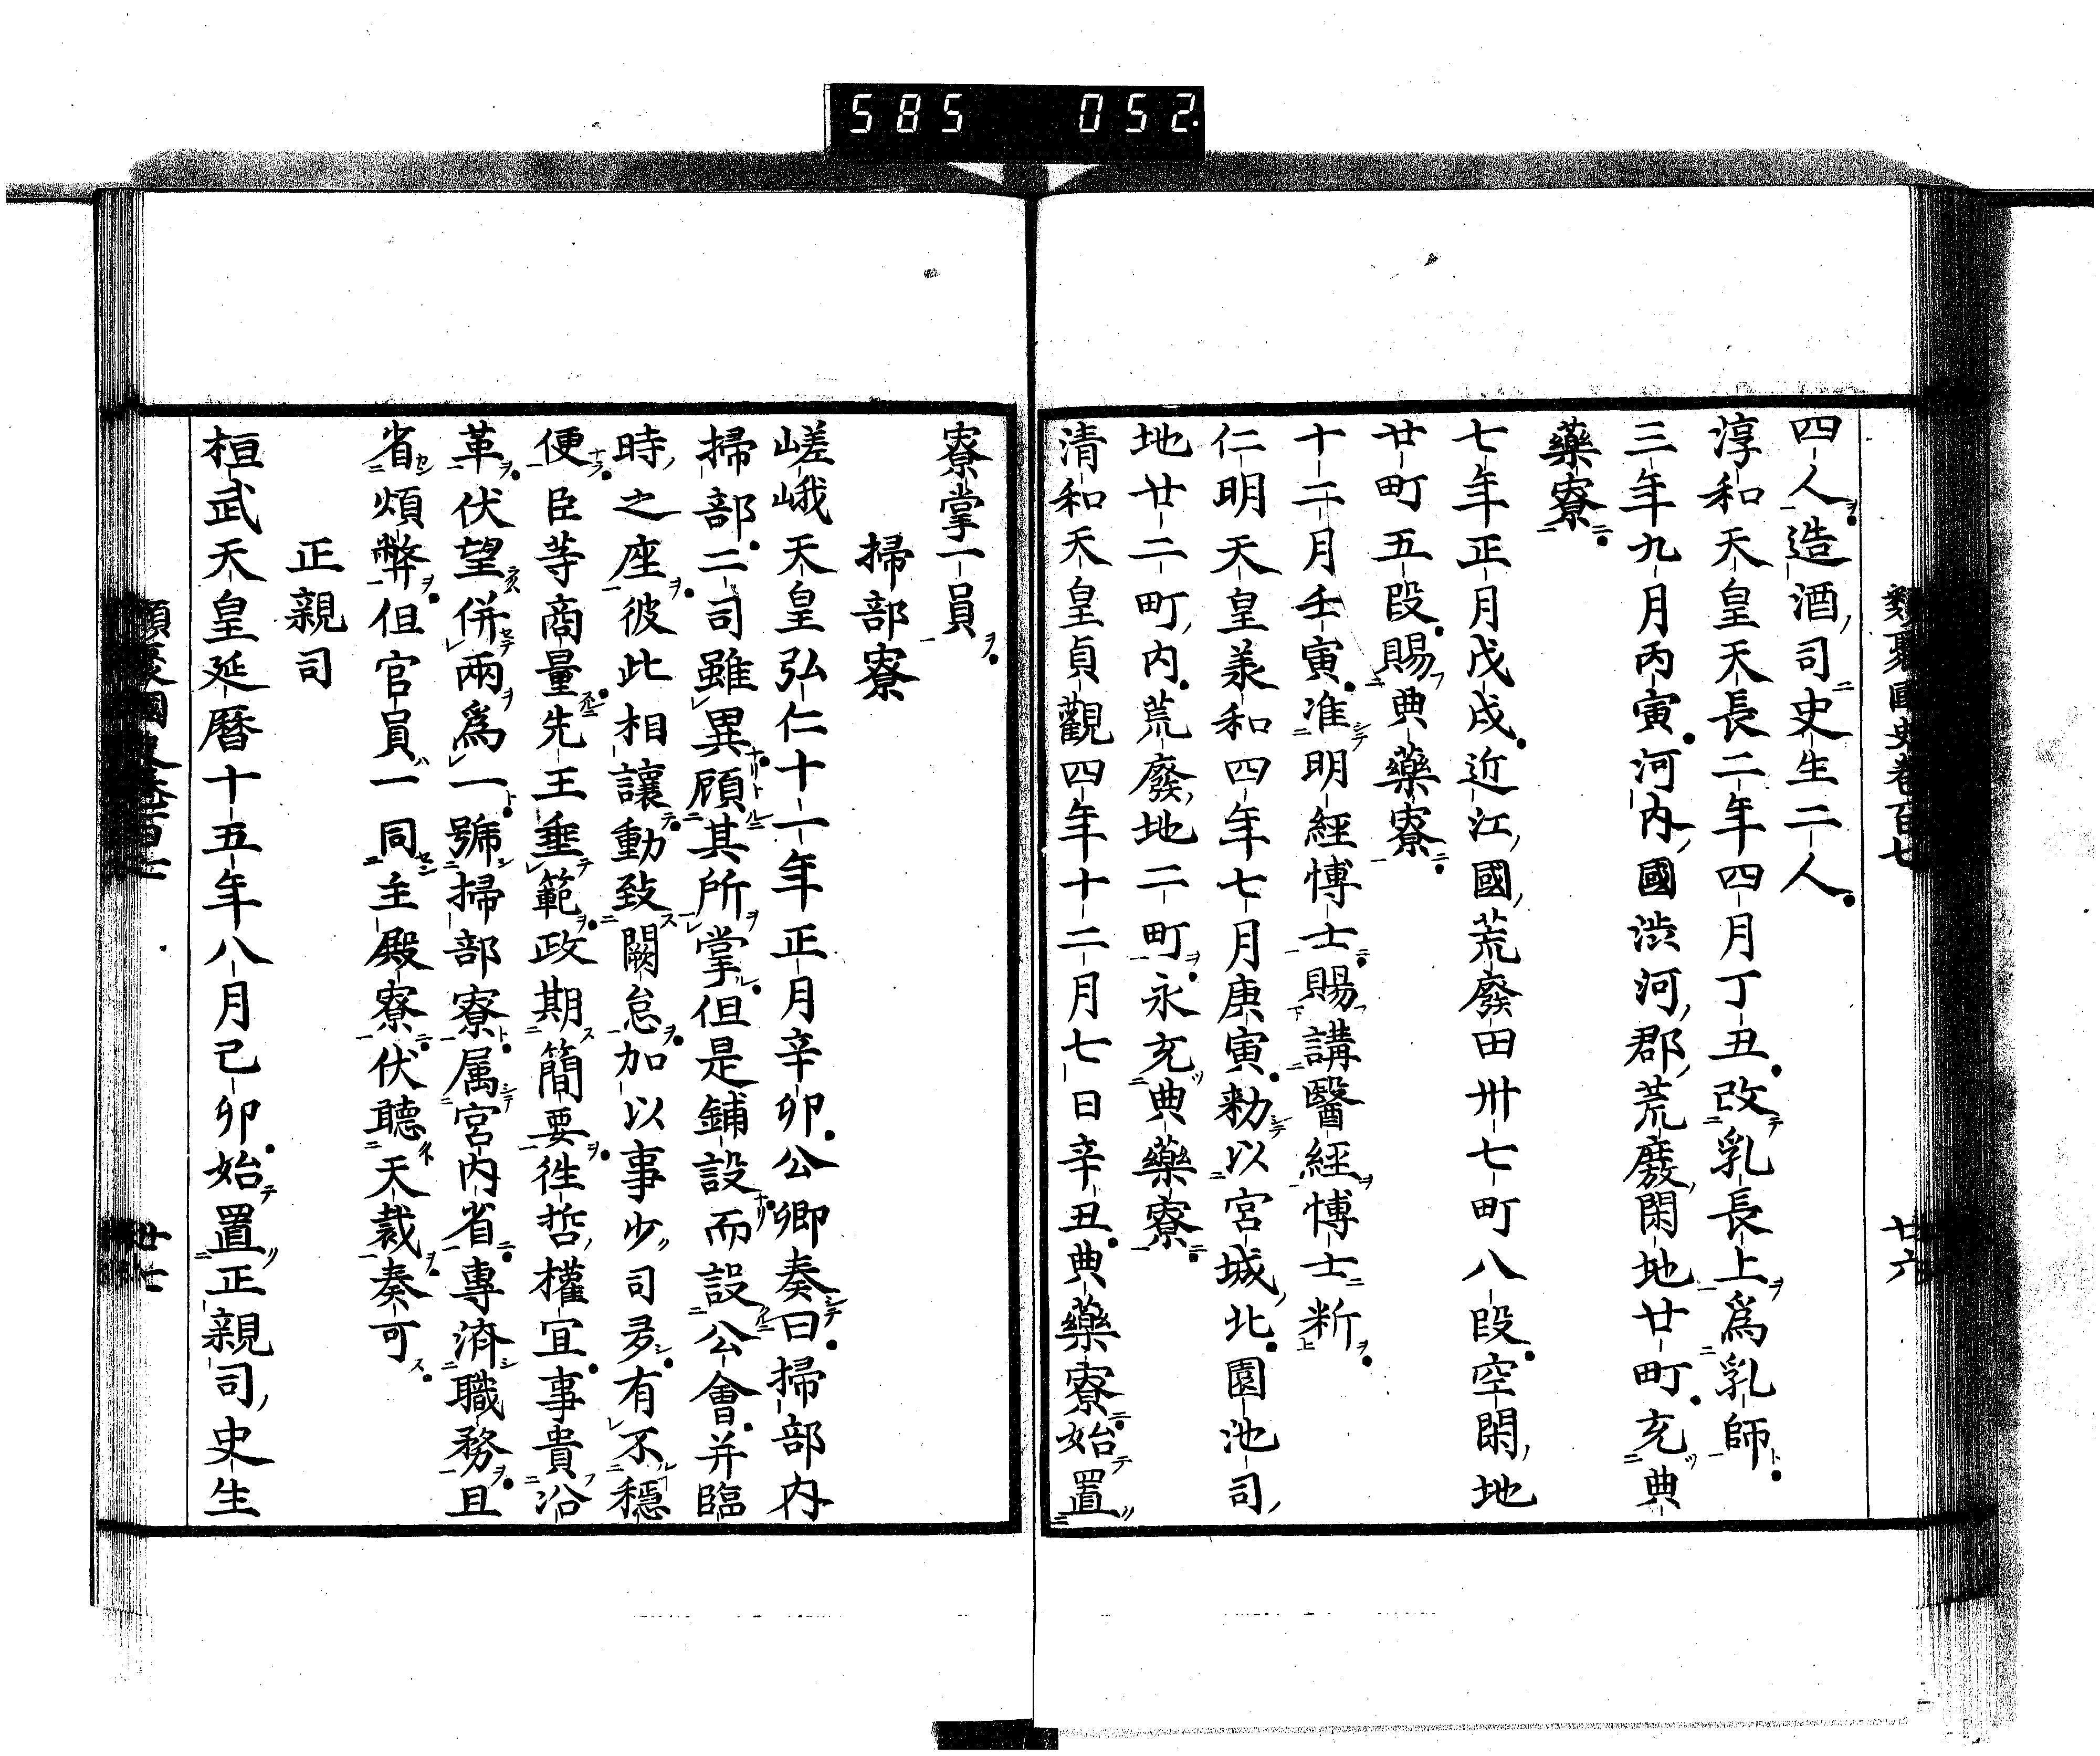 585 052
類聚國史卷百七 廿六
四人造酒司史生二人
淳和天皇天長二年四月丁丑改乳長上爲乳師
三年九月丙寅河内國渋河郡荒廢閑地廿町充典
藥寮
七年正月戊戌近江國荒廢田卅七町八段空閑地
廿町五段賜典藥寮
十二月壬寅准明經博士賜講醫經博士新
仁明天皇承和四年七月庚寅勅以宮城北園池司
地廿二町内荒廢地二町永充典藥寮
清和天皇貞觀四年十二月七日辛丑典藥寮始置
寮掌一員
掃部寮
嵯峨天皇弘仁十一年正月辛卯公卿奏曰掃部内
掃部二司雖異顧其所掌但是鋪設而設公會并臨
時之座彼此相讓動致闕怠加以事少司多有不穩
便臣等商量先王垂範政期簡要往哲權宜事貴沿
革伏望併兩爲一號掃部寮属宮内省專濟職務且
省煩弊但官員一同主殿寮伏聽天裁奏可
正親司
桓武天皇延暦十五年八月己卯始置正親司史生
類聚國史卷百七 廿七